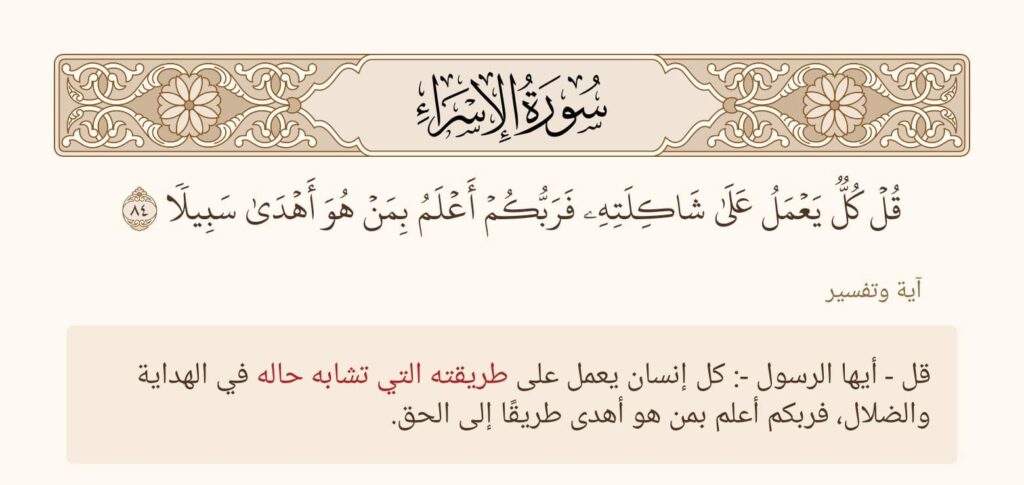 سُورَةُ الإِسْرَاءِ
قُلۡ كُلّٞ يَعۡمَلُ عَلَىٰ شَاكِلَتِهِۦ فَرَبُّكُمۡ أَعۡلَمُ بِمَنۡ هُوَ أَهۡدَىٰ سَبِيلٗا ٨٤
آية وتفسير
قل - أيها الرسول -: كل إنسان يعمل على طريقته التي تشابه حاله في الهداية
والضلال، فربكم أعلم بمن هو أهدى طريقًا إلى الحق.